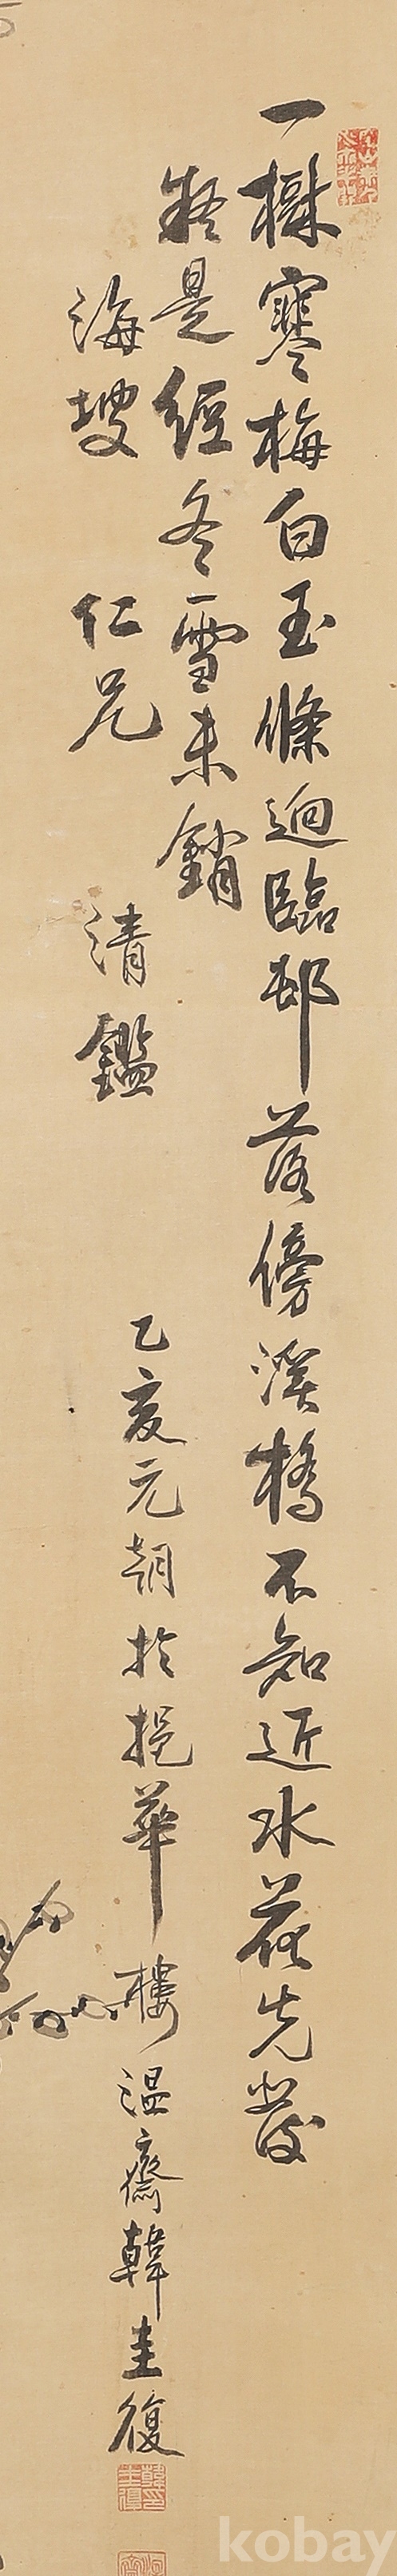 一樹寒梅白玉條迥臨邨落傍溪橋不知近水花先發
疑是經冬雪未銷
海叟 仁兄 清鑑
乙亥元朝於挹華樓溫齋韓圭復
kobay